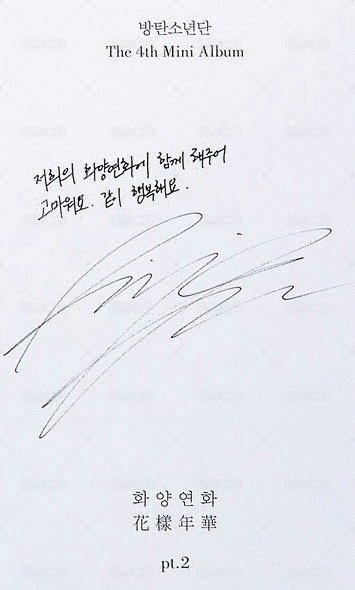 방탄소년단
The 4th Mini Album
저희의 화양연화에 함께 해주어
고마워요. 같이 행복해요.
화양연화
花樣年華
pt.2